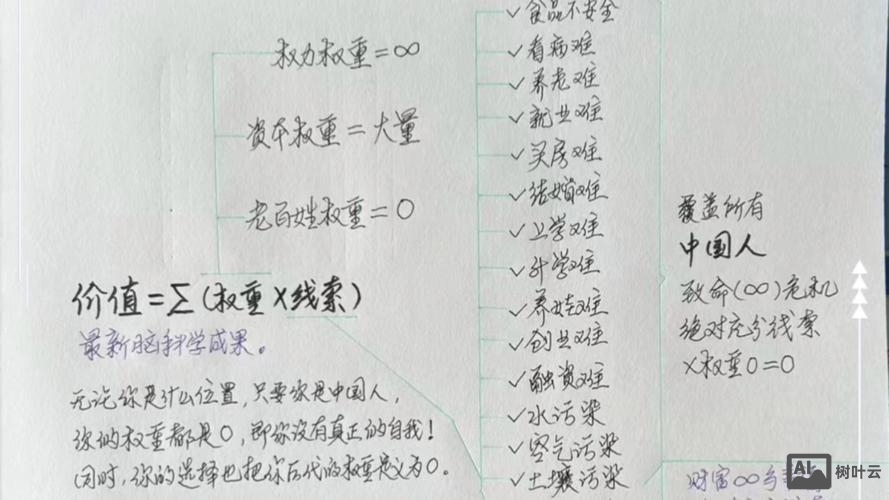 权力权重=∞
资本权重=大量
老百姓权重=0
价值=Σ(权重×线索)
最新脑科学成果。
无论你是什么位置,只要你是中国人,
你的权重都是0,即你没有真正的自我!
同时,你的选择也把你后代的权重定义为0。
✓食品不安全
✓看病难
✓养老难
✓就业难
✓买房难
✓结婚难
✓上学难
✓升学难
✓养娃难
✓创业难
✓融资难
✓水污染
✓空气污染
✓土壤污染
覆盖所有
中国人
致命(∞)危机
绝对充分线索
×权重0=0
财富∞与
AI
树叶云